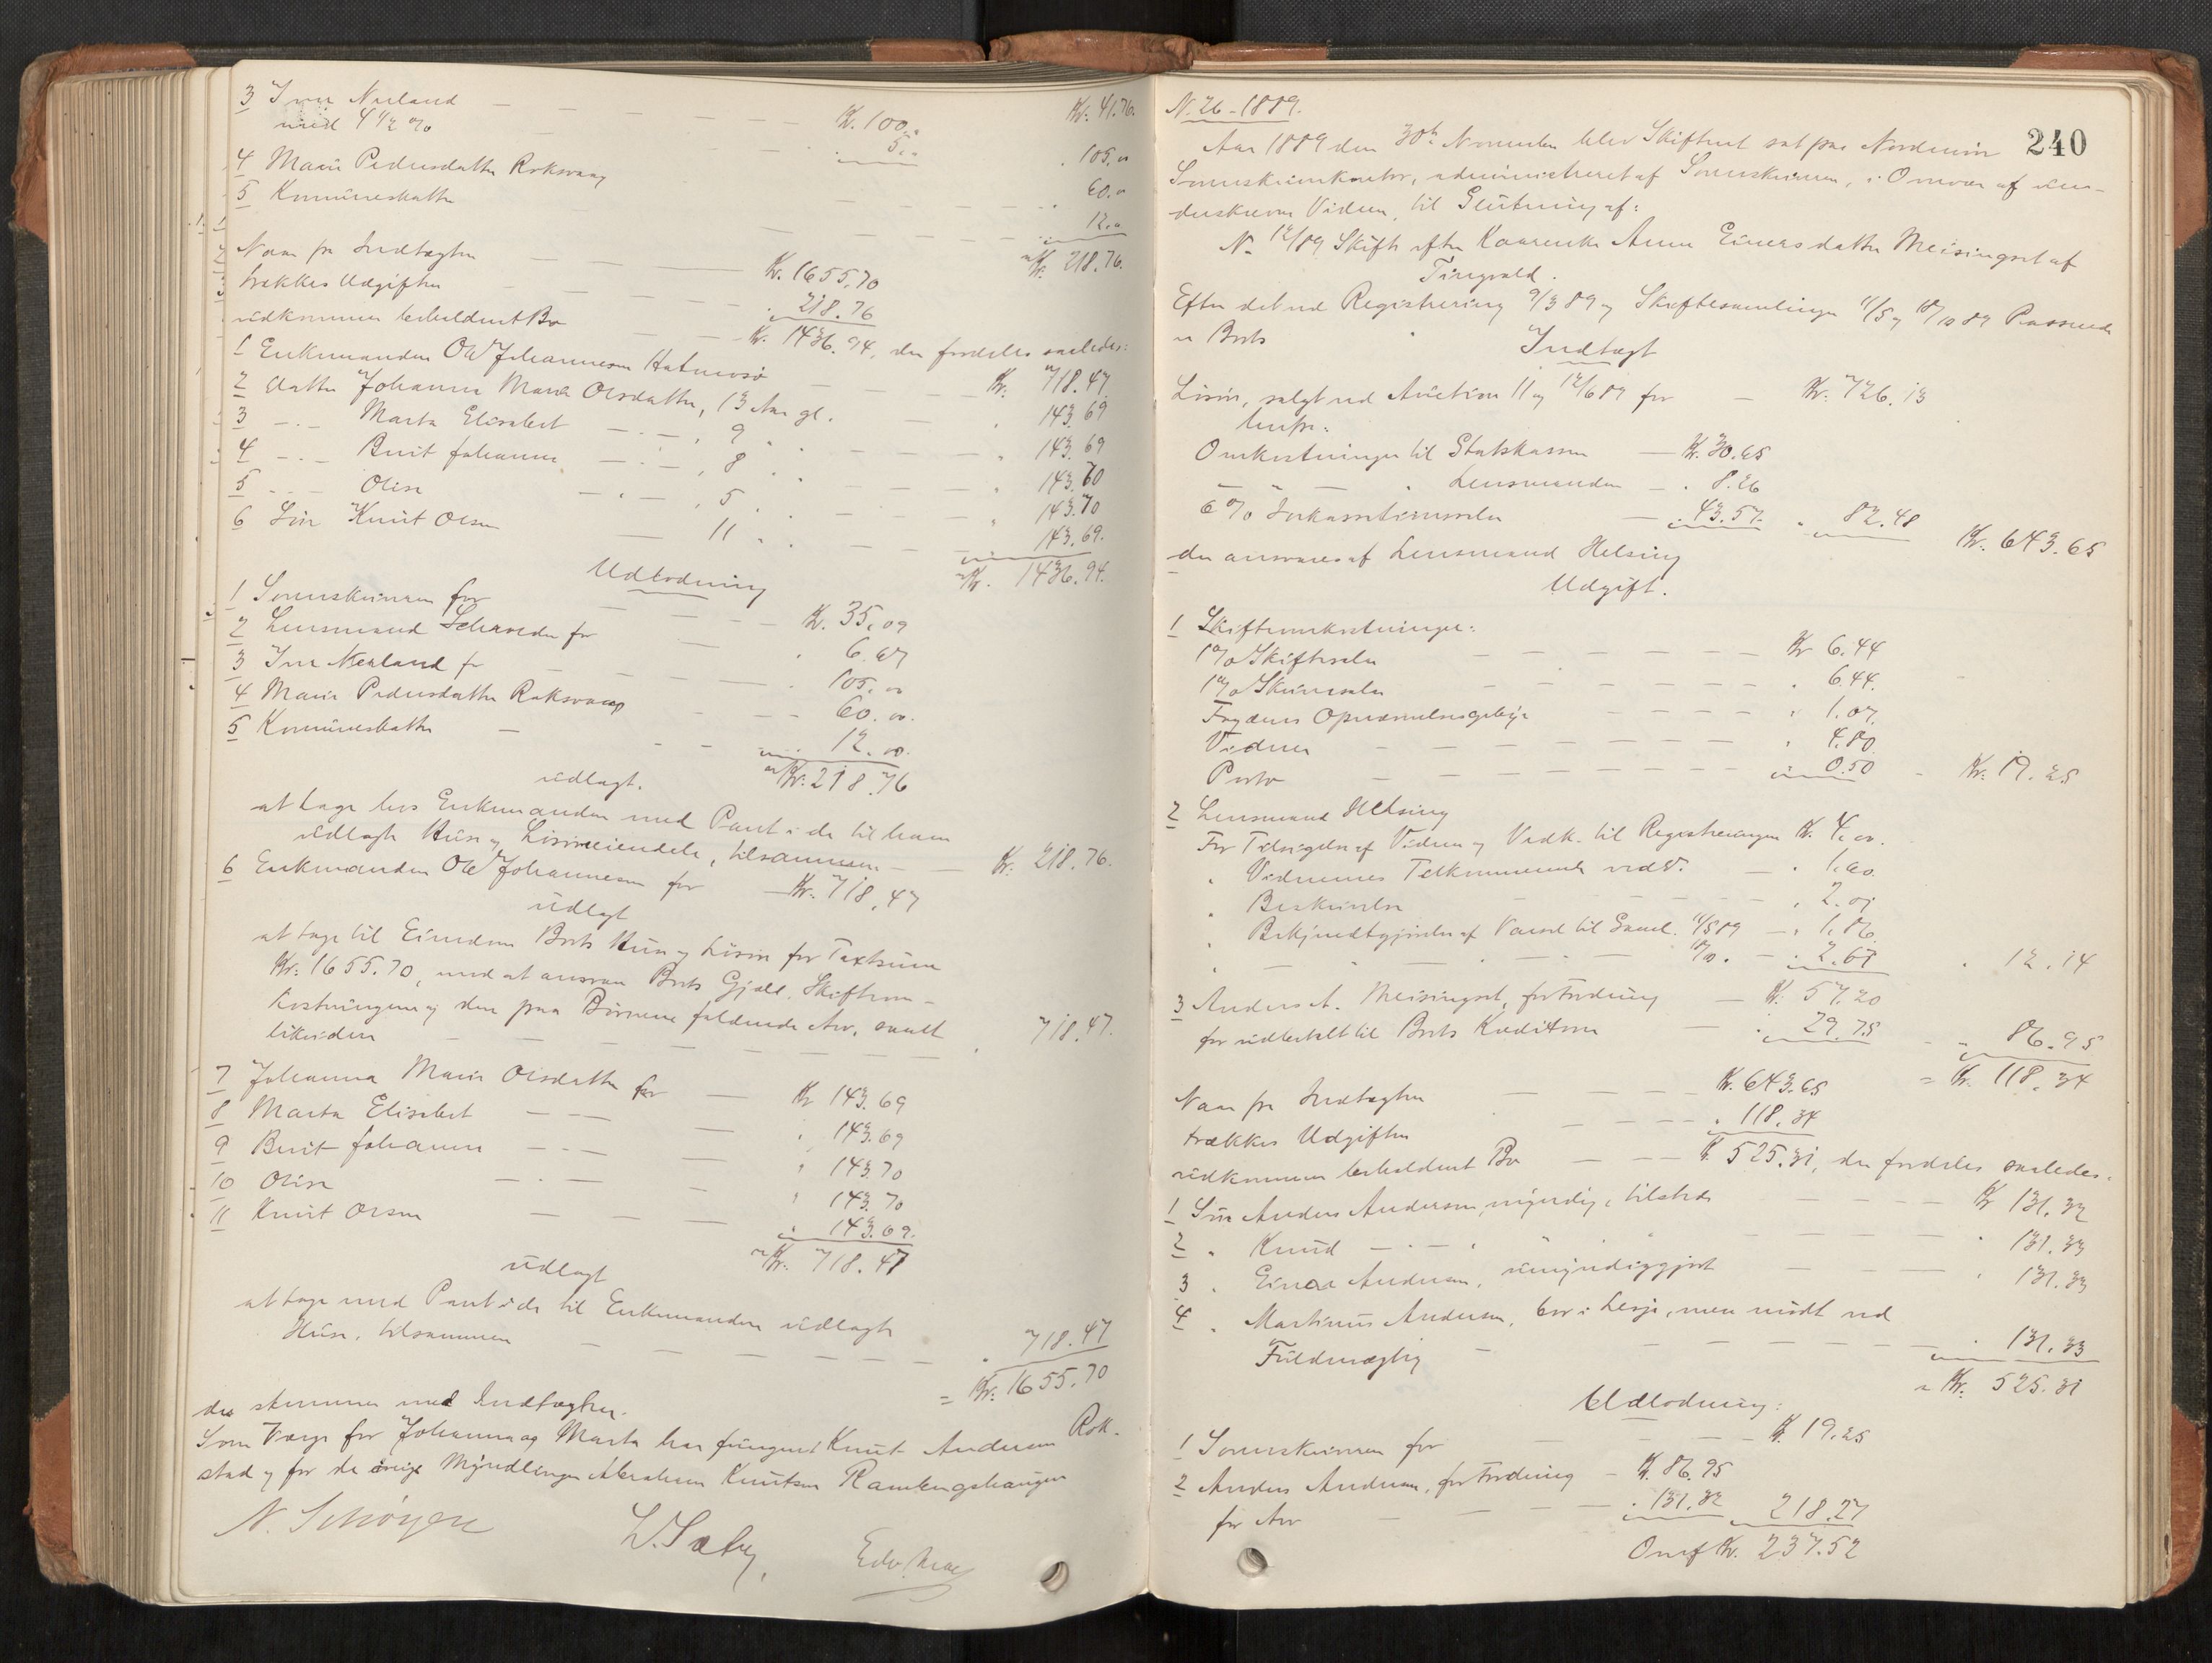 Kr. 41.76.
3 Iver Nerland
med 4 1/2 % Kr. 100..
5.. 105.00
4 Marie Pedersdatter Roksvaag 60.00
5 Kommuneskatter 12.00
= Kr. 218.76.
Naar fra Indtægten Kr. 1655.70
trækkes Udgiften 218.76
udkommer beholdent Bo Kr. 1436.94, der fordeles saaledes:
1 Enkemanden Ole Johannesen Kr. 718.47
2 datter Johanna Marie Olsdatter, 13 Aar gl. 143.69
3 Marta Elisabet 9 143.69
4 Berit Johanna 8 143.70
5 Oline 5 143.70
6 Søn Knut Olsen 11 143.69.
= Kr. 1436.94.
Udlodning
1 Sorenskriveren for Kr. 35.09
2 Lensmand Schrøder for 6.67
3 Iver Nerland for 105.00
4 Marie Pedersdatter Roksvaag 60.00.
5 Kommuneskatter 12.00.
= Kr. 218.76
udlagt.
at tage hos Enkemanden med Pant i de til ham
udlagte Huse og Løsøreiendele, tilsammen Kr. 218.76.
6 Enkemanden Ole Johannesen for Kr. 718.47
udlagt
at tage til Eiendom Boets Huse og Løsøre for Taxtsum
Kr. 1655.70, med at ansvare Boets Gjæld, Skifteom-
kostningerne og den paa Børnene faldende Arv, samt
likvidere 718.47.
7 Johanna Marie Olsdatter for Kr 143.69
8 Marta Elisabet 143.69
9 Berit Johanna 143.70
10 Oline 143.70
11 Knut Olsen 143.69.
= Kr. 718.47
udlagt
at tage med Pant i de til Enkemanden udlagte
Huse, tilsammen 718.47
= Kr. 1655.70
der stemmer med Indtægten.
Som Værge for Johanna og Marta har fungeret Knut Andersen Rok-
stad og for de øvrige Myndlinger Abraham Knutsen
N. Schøyen
N. 26-1889.
240
Aar 1889 den 30te November blev Skifteret sat paa Nordmøre
Sorenskriverkontor, administreret af Sorenskriveren, i Overvær af un-
derskrevne Vidner, til Slutning af:
N. 12/89 Skifte efter Kaarenke Anne Einersdatter Meisingset af
Tingvold.
Efter det ved Registrering 9/3 89 og Skiftesamlinger 11/5 og 18/10 89 Passerede
er Boets
Indtægt
Løsøre, solgt ved Auction 11 og 12/6 89 for Kr. 726.13
herfra:
Omkostninger til Statskassen Kr. 30.65
Lensmanden 8.26
6 % Inkassationssalær 43.57. 82.48
der ansvares af Lensmand Helsing Kr. 643.65
Udgift.
1 Skifteomkostninger:
1 % Skiftesalær Kr 6.44
1 % Skriversalær 6.44.
Fogdens Opnævnelsesgebyr 1.07.
Vidner 4.80.
Porto 0.50 Kr. 19.25
2 Lensmand Helsing
For Tilsigelse af Vidner og Vedk. til Registreringen Kr. 4.00.
Vidnernes Tilkommende ved do. 1.60.
Beskrivelse 2.01
Bekjendtgjørelse af Varsel til Saml. 11/5 89 1.86
18/10. 2.67 12.14
3 Anders A. Meisingset, for Fordring Kr. 57.20
for udbetalt til Boets Kreditorer 29.75 86.95
= Kr. 118.34
Naar fra Indtægten Kr. 643.65
trækkes Udgiften 118.34
udkommer beholdent Bo Kr. 525.31, der fordeles saaledes.
1 Søn Anders Andersen, myndig, tilstede Kr 131.32
2 Knud 131.33
3 Einar Andersen, umyndiggjort 131.33
4 Martinus Andersen, bor i Lesje, men mødt ved
Fuldmægtig 131.33
= Kr. 525.31
Udlodning:
1 Sorenskriveren for Kr. 19.25
2 Anders Andersen, for Fordring Kr. 86.95
for Arv 131.32 218.27
Overf. Kr. 237.52